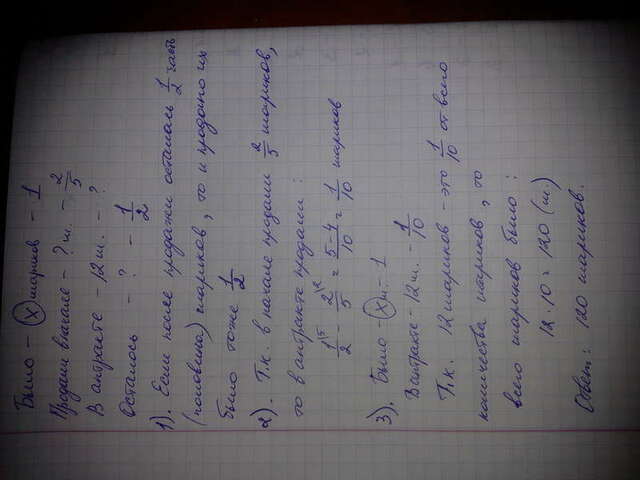 Было – (x) шариков – 1
Продали вначале – ? ш. – 2/5
В антракте – 12 ш. – ?
Осталось – ? – 1/2
1). Если после продажи осталась 1/2 часть
(половина) шариков, то и продано их
было тоже 1/2
2). Т.к. в начале продали 2/5 шариков,
то в антракте продали:
1/2 – 2/5 = (5-4)/10 = 1/10 шариков
3). Было – (x) ш. – 1
В антракте – 12 ш. – 1/10
Т.к. 12 шариков – это 1/10 от всего
количества шариков, то
всего шариков было:
12 · 10 = 120 (ш.)
Ответ: 120 шариков.